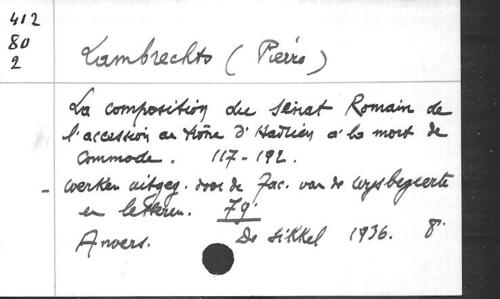 412
80
2
Lambrechts (Pierre)
La composition du Sénat Romain de
l'accession au trône d'Hadrien à la mort de
Commode. 117-192.
- Werken uitgeg. door de Fac. van de Wysbegeerte
en letteren. 79
Anvers. De Sikkel 1936. 8°